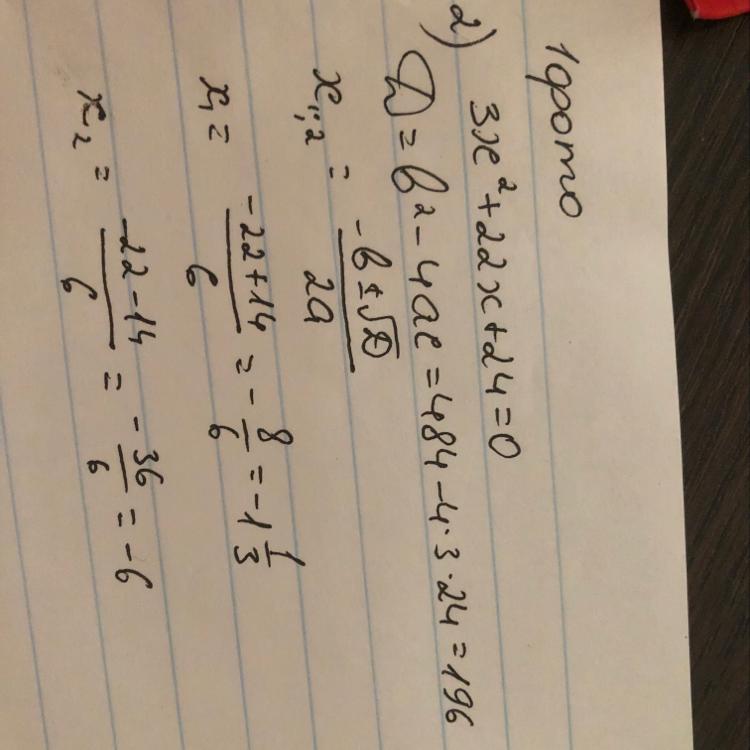 1 фото
2) 3x² + 22x + 24 = 0
D = b² - 4ac = 484 - 4·3·24 = 196
x₁,₂ = (-b ± √D) / 2a
x₁ = (-22 + 14) / 6 = - 8/6 = -1 1/3
x₂ = (-22 - 14) / 6 = - 36/6 = -6